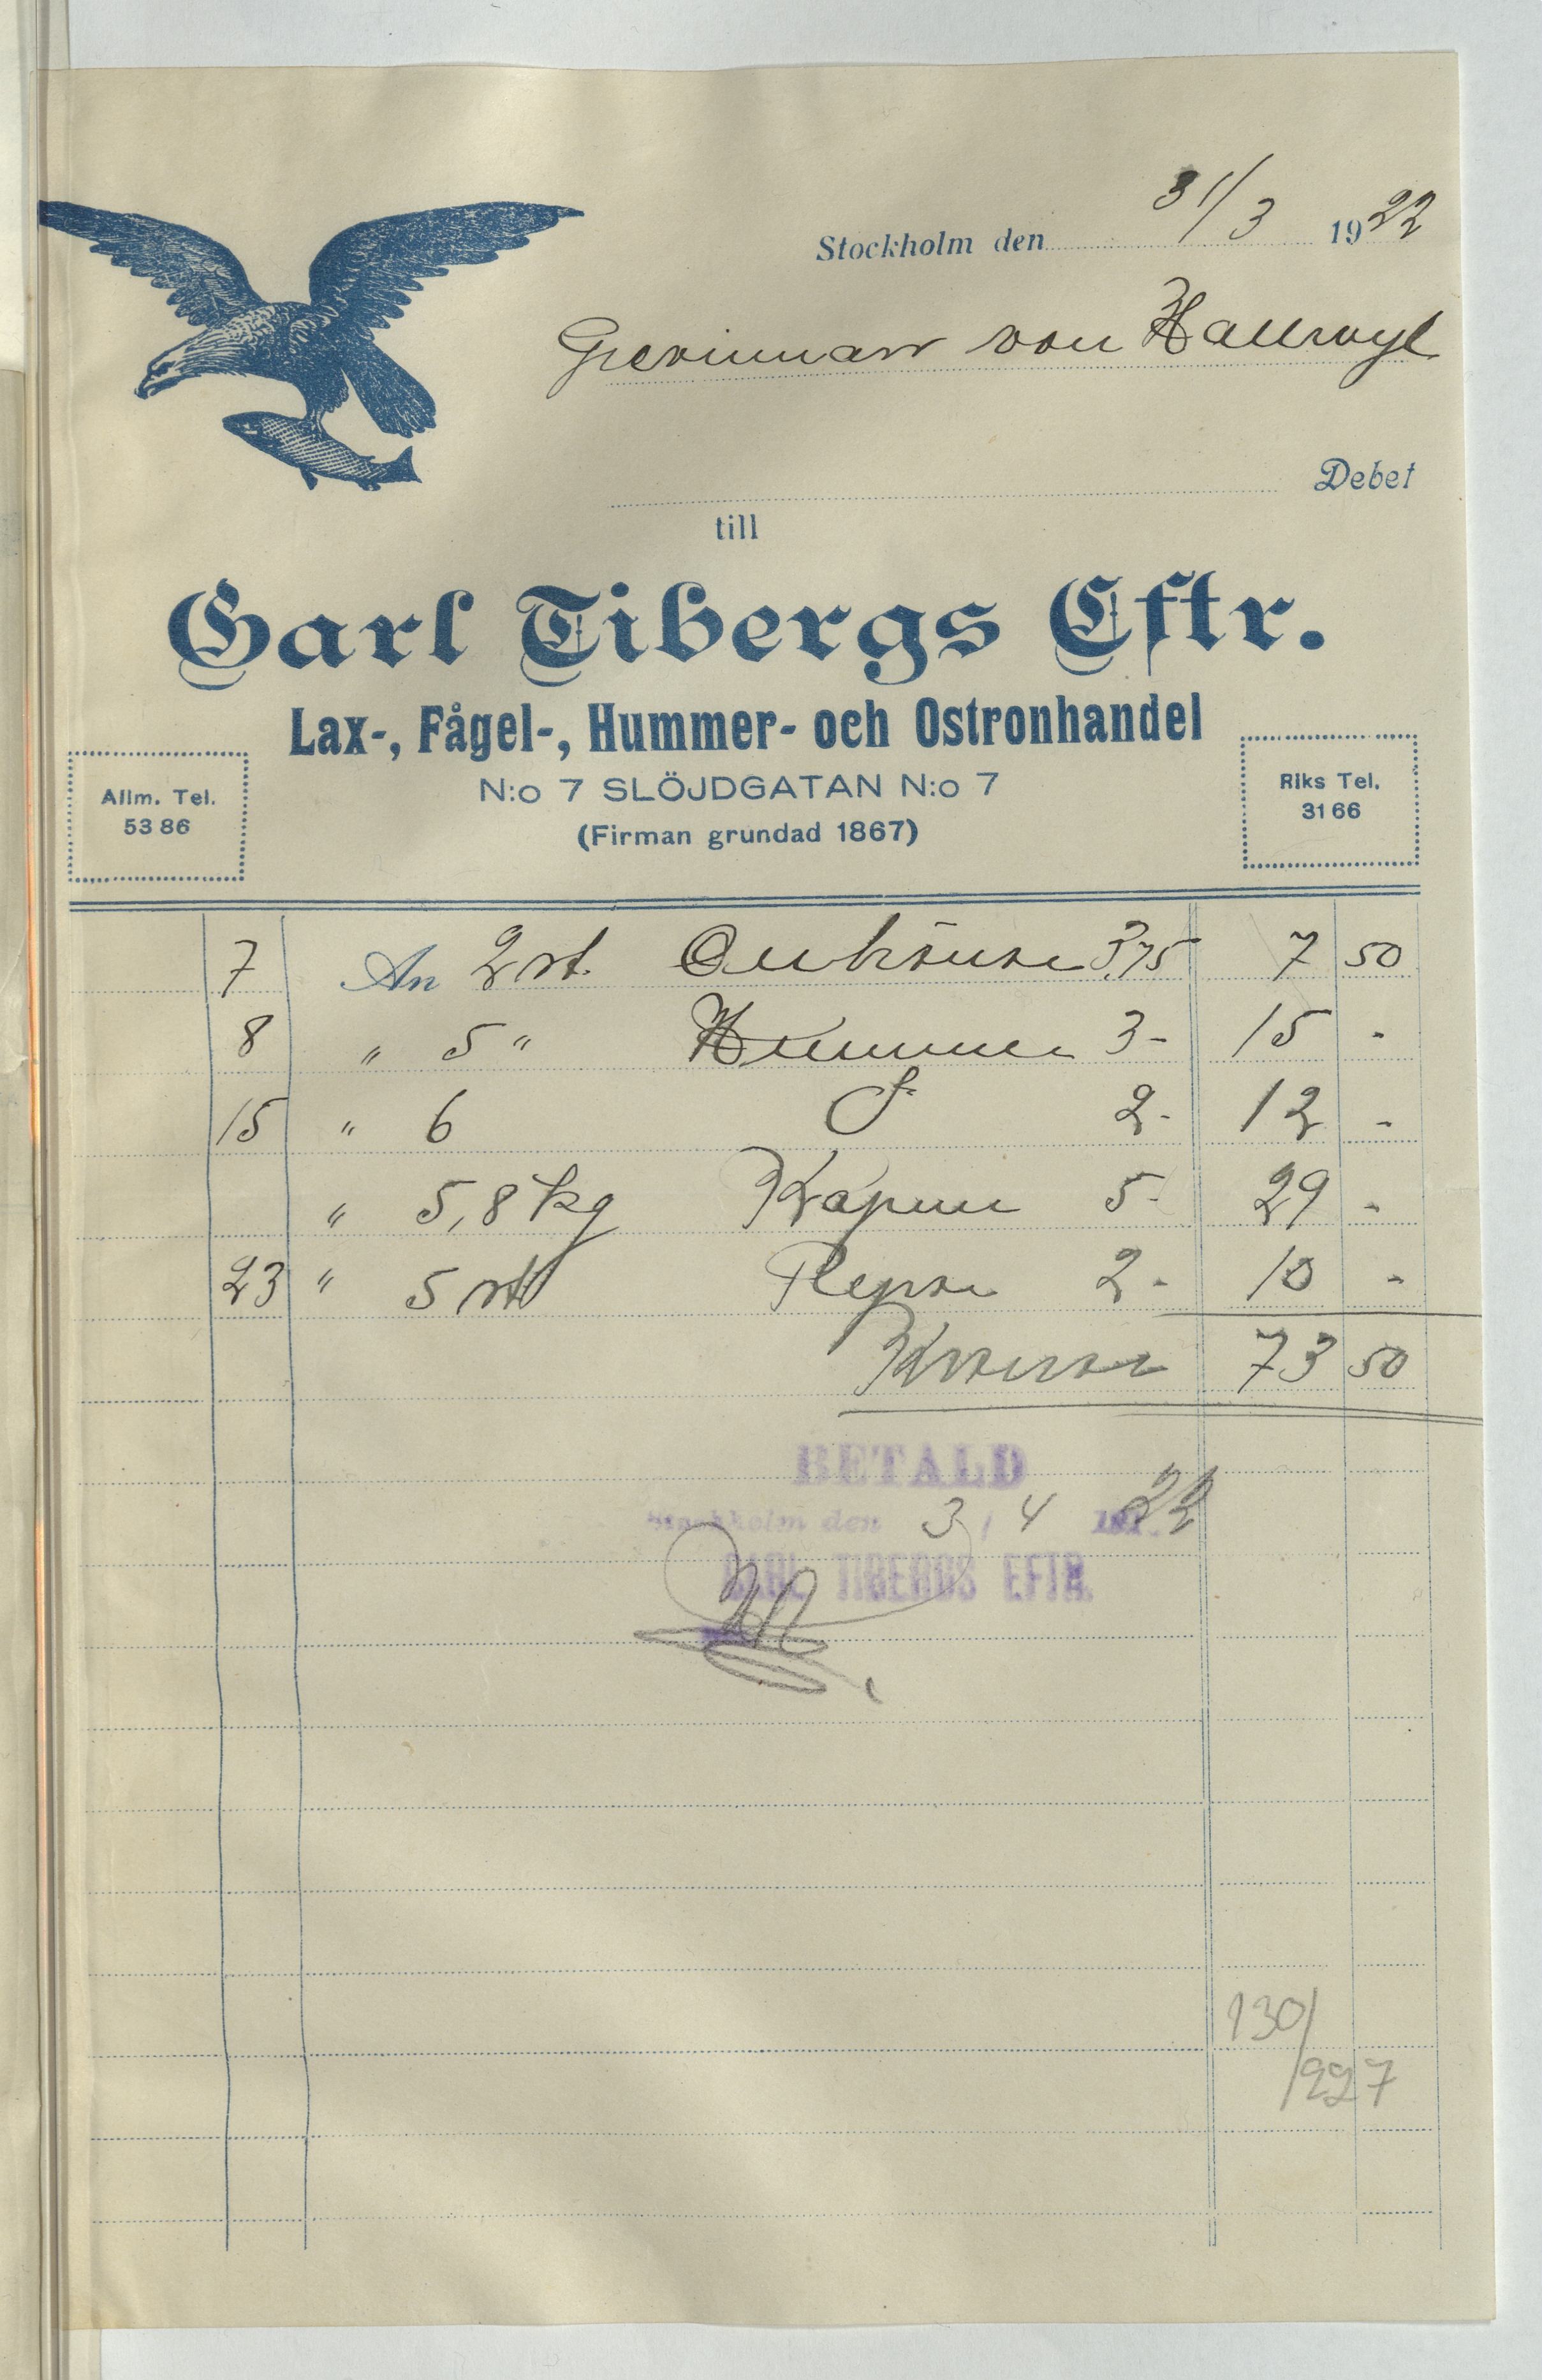 Stockholm den 31/3 1922
Grevinnan von Hallwyl
Debet
till
Carl Tibergs Eftr.
Lax-, Fågel-, Hummer- och Ostronhandel
N:o 7 SLÖJDGATAN N:o 7
(Firman grundad 1867)
Allm. Tel.
53 86
Riks Tel.
31 66
7 An 2 st. Orrhönor 3,75 7 50
8 " 5 " Hummer 3- 15 -
15 " 6 2- 12 -
" 5,8 kg Kapun 5- 29 -
23 " 5 st Ripor 2- 10 -
Kronor 73 50
BETALD
Stockholm den 3/4 22
CARL TIBERGS EFTR.
130/
227